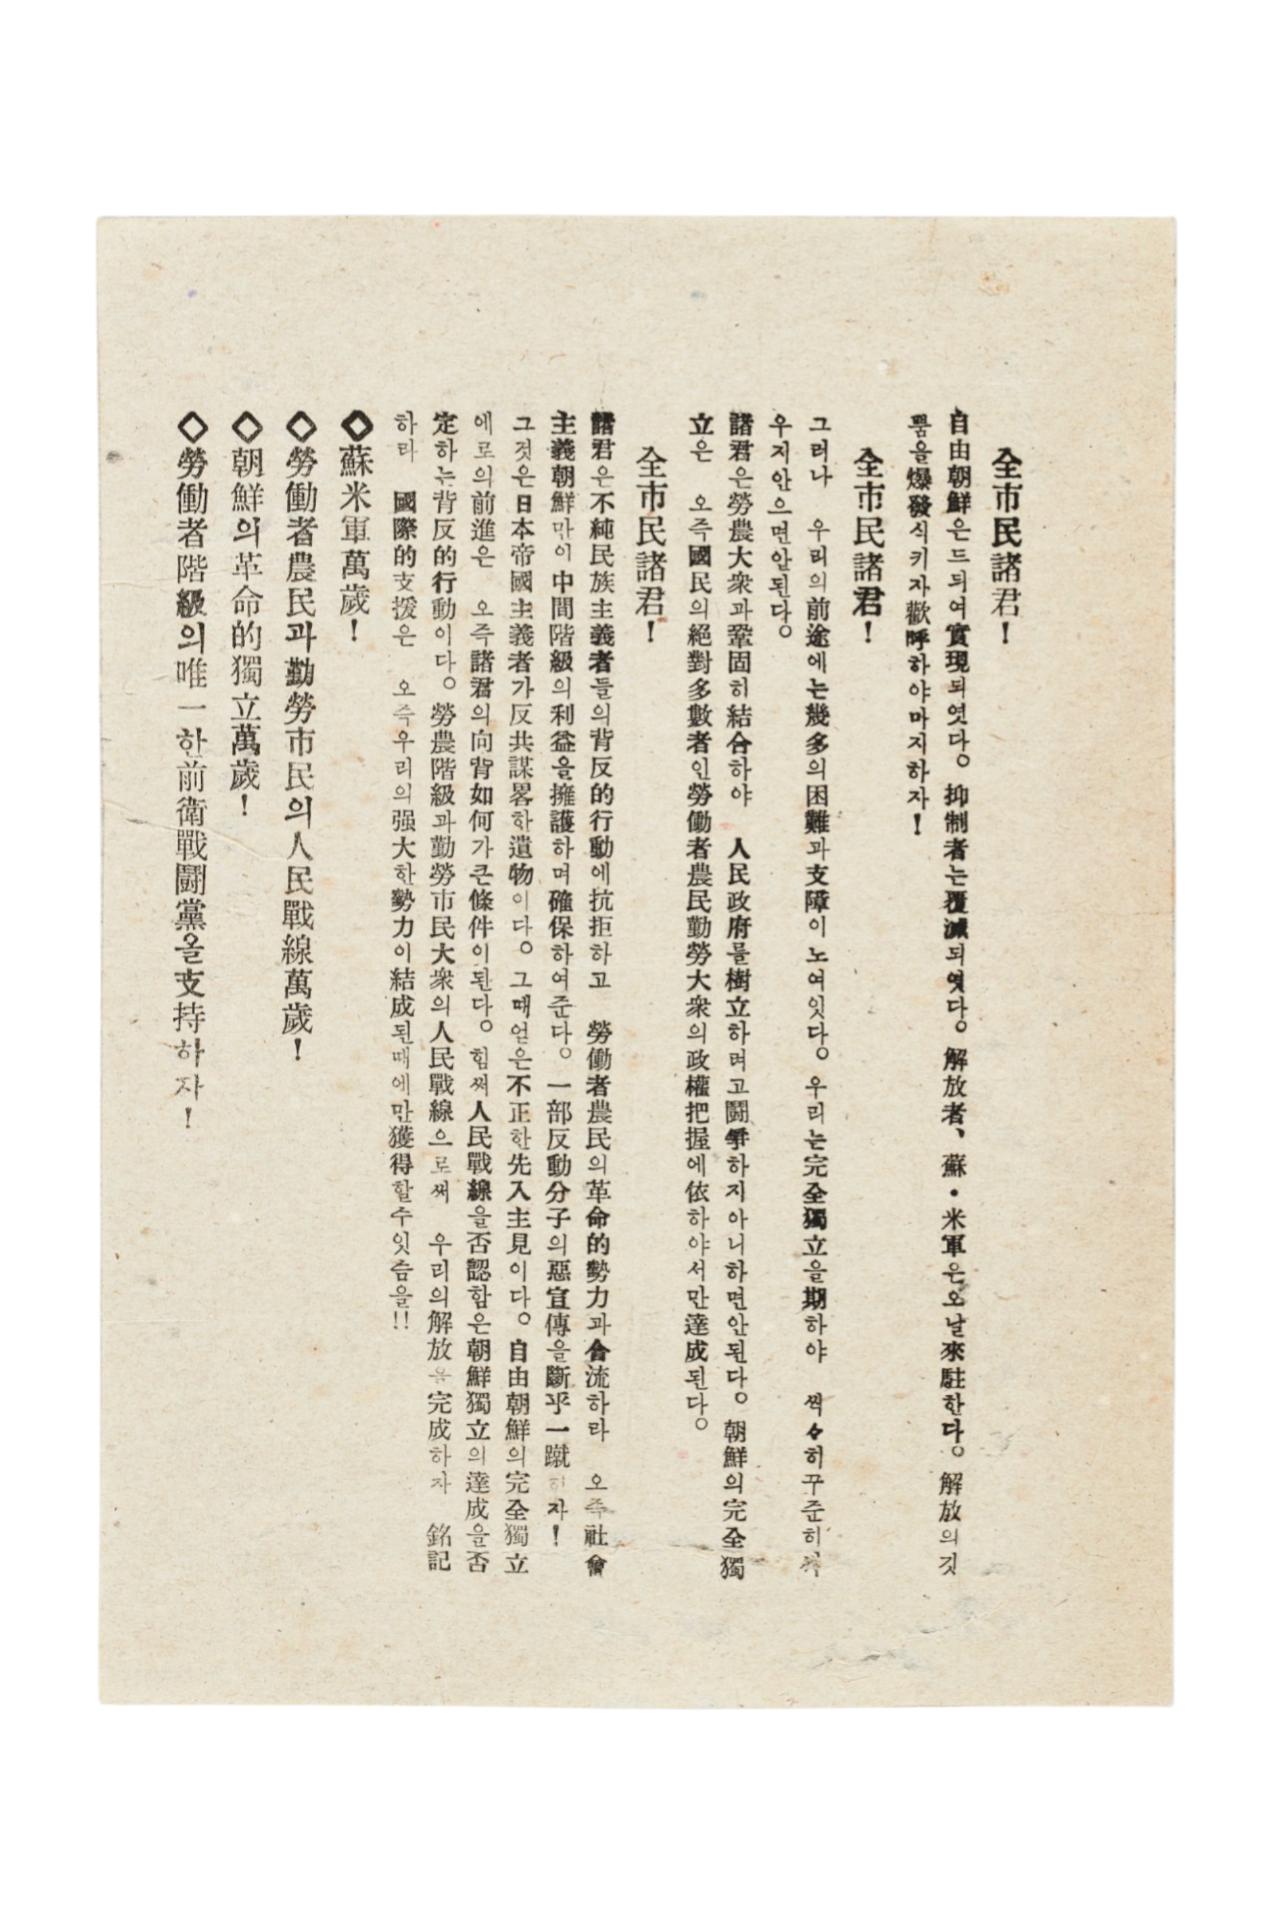 全市民諸君!
自由朝鮮은드듸여實現되엿다。抑制者는覆滅되엿다。解放者、蘇・米軍은오날來駐한다。解放의깃
뿜을爆發식키자歡呼하야마지하자!
全市民諸君!
그러나 우리의前途에는幾多의困難과支障이노여잇다。우리는完全獨立을期하야 씩々히꾸준히싸
우지안으면안된다。
諸君은勞農大衆과鞏固히結合하야 人民政府를樹立하려고鬪爭하지아니하면안된다。朝鮮의完全獨
立은 오즉國民의絕對多數者인勞働者農民勤勞大衆의政權把握에依하야서만達成된다。
全市民諸君!
諸君은不純民族主義者들의背反的行動에抗拒하고 勞働者農民의革命的勢力과合流하라 오즉社會
主義朝鮮만이中間階級의利益을擁護하며確保하여준다。一部反動分子의惡宣傳을斷乎一蹴하자!
그것은日本帝國主義者가反共謀畧한遺物이다。그때얻은不正한先入主見이다。自由朝鮮의完全獨立
에로의前進은 오즉諸君의向背如何가큰條件이된다。힘써人民戰線을否認함은朝鮮獨立의達成을否
定하는背反的行動이다。勞農階級과勤勞市民大衆의人民戰線으로써 우리의解放을完成하자 銘記
하라 國際的支援은 오즉우리의强大한勢力이結成된때에만獲得할수잇슴을!!
◇蘇米軍萬歲!
◇勞働者農民과勤勞市民의人民戰線萬歲!
◇朝鮮의革命的獨立萬歲!
◇勞働者階級의唯一한前衛戰鬪黨을支持하자!